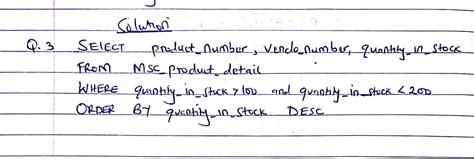 Solution
Q.3 SELECT product_number, vendo_number, quantity_in_stock
FROM MSC_product_detail
WHERE quantity_in_stock >100 and quantity_in_stock < 200
ORDER BY quantity_in_stock DESC